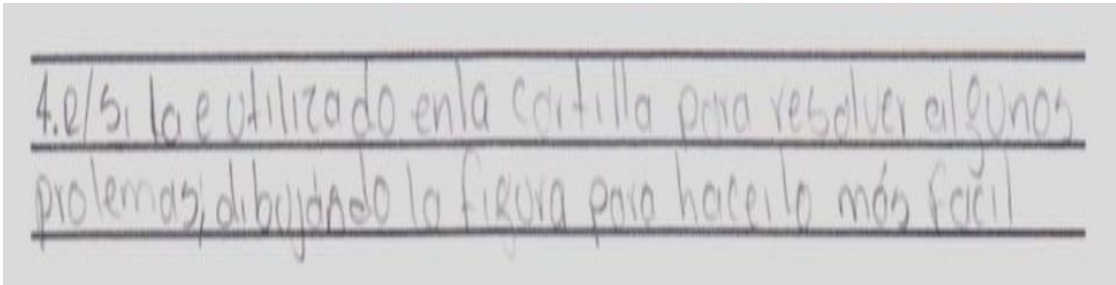 4.e/Si la e utilizado en la cartilla para resolver algunos
prolemas, dibujándo la figura para hacerlo más facil